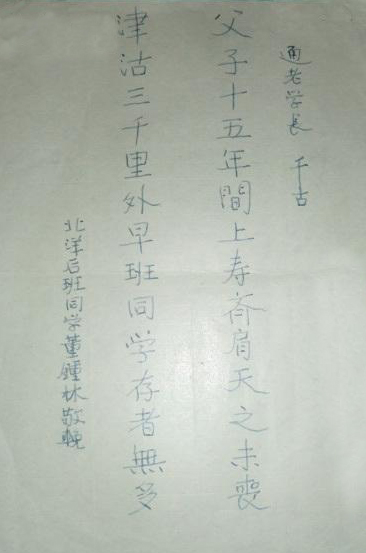 通老学長 千古
父子十五年間上寿齐肩天之未喪
津沽三千里外早班同学存者無多
北洋后班同学董鍾林敬輓